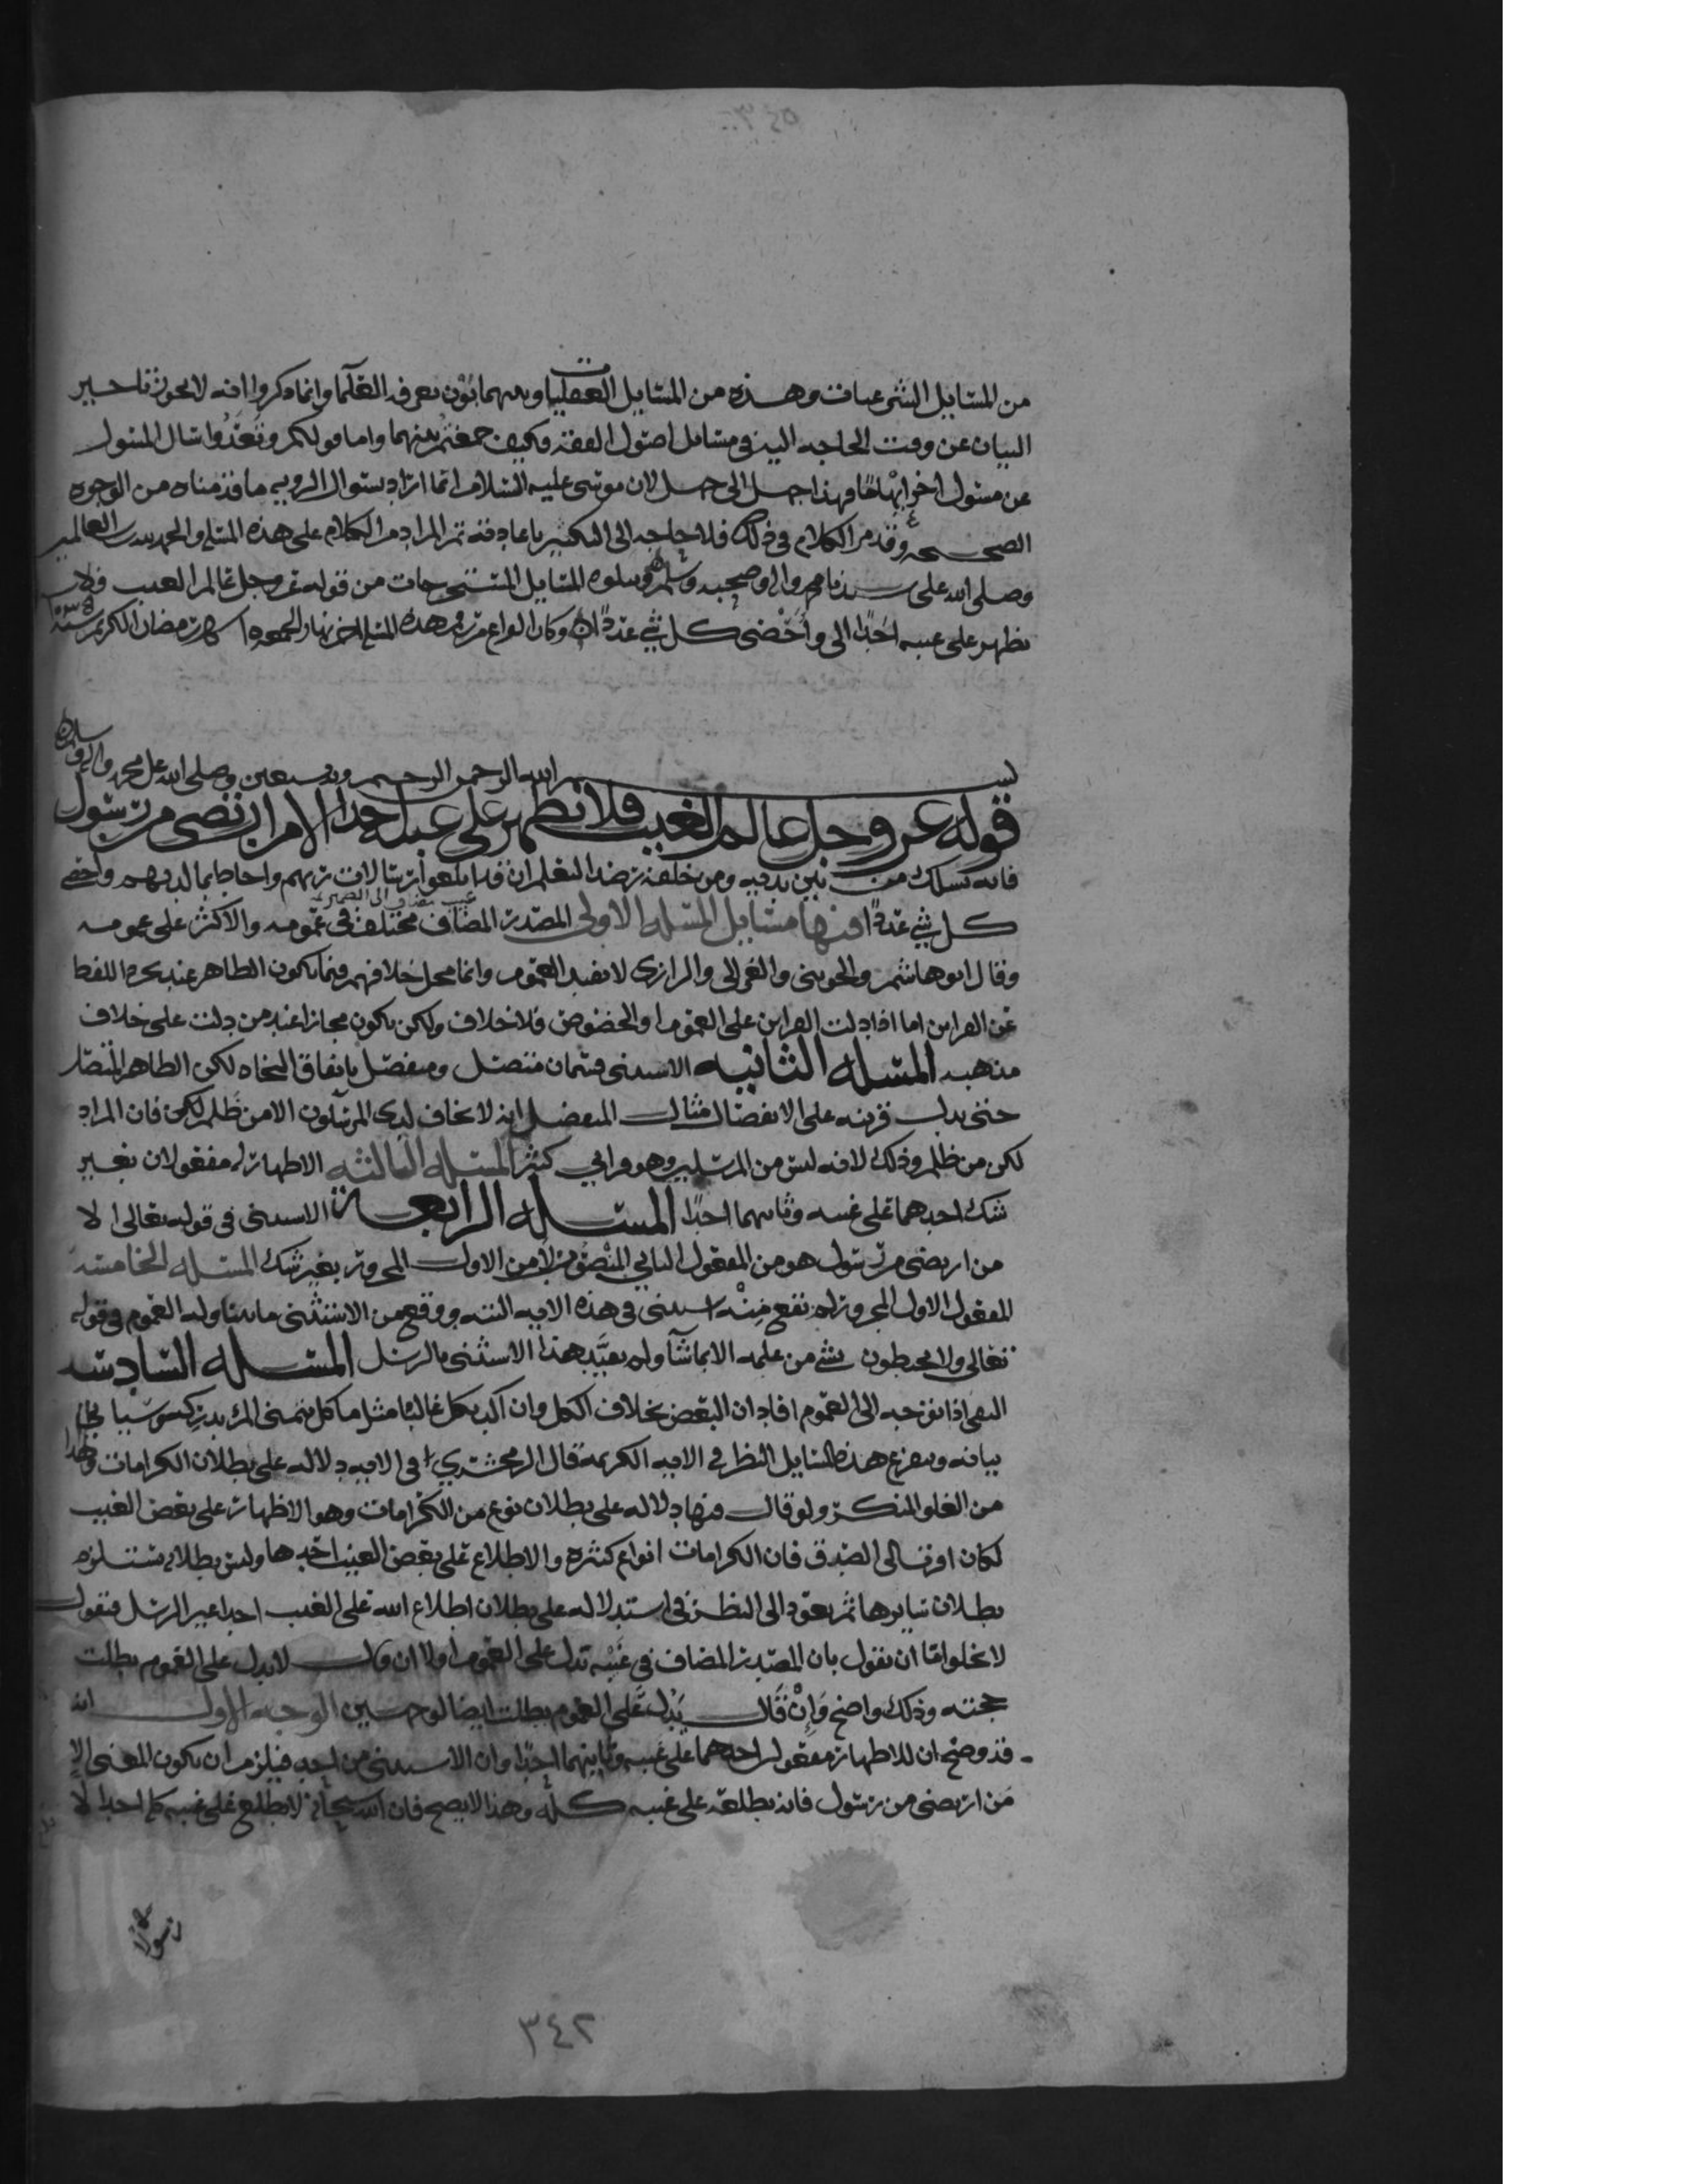 من المسايل الشرعيات وهذه من المسايل العقليات وبينهما بون يعرفه العلما وانما ذكروا انه لا يجوز تاخير
البيان عن وقت الحاجه اليه في مسايل اصول الفقه وكيف جمعتم بينهما واما قولكم وتعذوا سال المسول
عن مسول اخر ابهاما فهذا جهل الى جهل لان موسى عليه السلام انما اراد بسوال الرويه ما قدمناه من الوجوه
الصحيحه وقد مر الكلام في ذلك فلا حاجه الى التكثير باعادته تم المراد من الكلام على هذه المسله والحمد لله رب العالمين
وصلى الله على سيدنا محمد واله وصحبه وسلم ويتلوه المسايل المستخرجات من قوله عز وجل عالم الغيب فلا
يظهر على غيبه احدا الى واحصى كل شي عددا وكان الفراغ من هذه المسله اخر نهار الجمعه شهر رمضان الكريم سنة
بسم الله الرحمن الرحيم وبه نستعين وصلى الله على محمد واله وسلم
قوله عز وجل عالم الغيب فلا يظهر على غيبه احدا الا من ارتضى من رسول
فانه يسلك من بين يديه ومن خلفه رصدا ليعلم ان قد ابلغوا رسالات ربهم واحاط بما لديهم واحصى
كل شي عددا فيها مسايل المسله الاولى المصدر المضاف مختلف في عمومه والاكثر على عمومه
غيب مضاف الى الضمير
وقال ابو هاشم والجويني والغزالي والرازي لا يفيد العموم وانما محل خلافهم فيما يكون الظاهر عند تجرد اللفظ
عن القراين اما اذا دلت القراين على العموم او الخصوص فلا خلاف ولكن يكون مجازا عند من دلت على خلاف
مذهبه المسله الثانيه الاستثنى قسمان متصل ومنفصل باتفاق النحاه لكن الظاهر الاتصال
حتى يدل قرينه على الانفصال مثال المنفصل اني لا يخاف لدي المرسلون الا من ظلم لكن فان المراد
لكن من ظلم وذلك لانه ليس من المرسلين وهو قراني كثير المسله الثالثه الاظهار له مفعولان بغير
شك احدهما على غيبه وثانيهما احدا المسله الرابعه الاستثنى في قوله تعالى الا
من ارتضى من رسول هو من المفعول الثاني المنصوب لا من الاول المجرور بغير شك المسله الخامسه
المفعول الاول المجرور لم يقع منه استثنى في هذه الايه البته ووقع من الاستثنى ما يتناوله العموم في قوله
تعالى ولا يحيطون بشي من علمه الا بما شآ ولم يقيد هذا الاستثنى بالرسل المسله السادسه
النفي اذا توجه الى العموم افاد ان البعض بخلاف الكل وان اكد بكل غالبا مثل ما كل يتمنى المرء يدركه وسياتي
بيانه ويتفرع هذه المسايل النظر في الايه الكريمه قال الزمخشري في الايه دلاله على بطلان الكرامات وهذا
من الغلو المنكر ولو قال فيها دلاله على بطلان نوع من الكرامات وهو الاظهار على بعض الغيب
لكان اقرب الى الصدق فان الكرامات انواع كثيره والاطلاع على بعض الغيب احدها وليس بطلانه يستلزم
بطلان سايرها ثم يعود الى النظر في استدلاله على بطلان اطلاع الله على الغيب احدا غير الرسل فنقول
لا يخلو اما ان نقول بان المصدر المضاف في غيبه تدل على العموم او لا ان قال لا يدل على العموم بطلت
حجته وذلك واضح وان قال يدل على العموم بطلت ايضا لوجهين الوجه الاول انه
قد وضح ان للاظهار مفعولين احدهما على غيبه وثانيهما احدا وان الاستثنى من احد فيلزم ان يكون المعنى الا
من ارتضى من رسول فانه يطلعه على غيبه كله وهذا لا يصح فان الله سبحانه لا يطلع على غيبه كله احدا لا
رسولا
٣٤٢